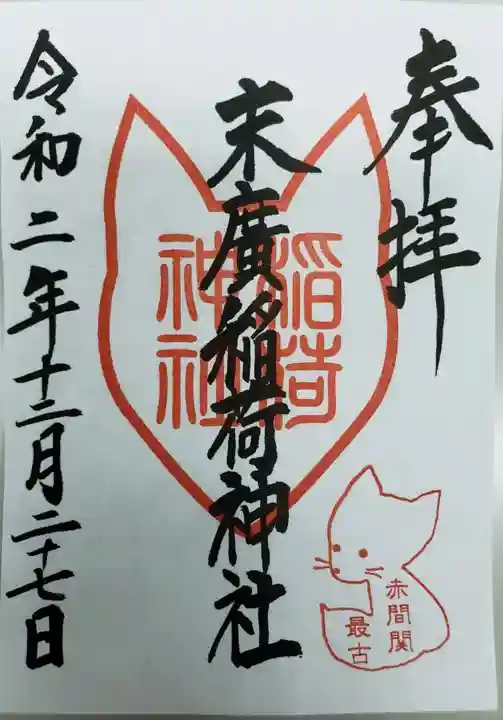 奉拝
末廣稲荷神社
稲荷
神社
令和二年十二月二十七日
赤間関
最古